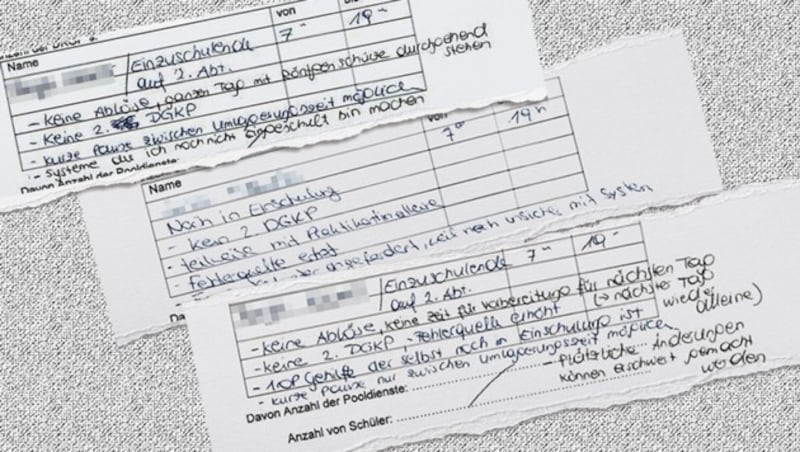 von
Name
7⁰⁰ 19⁰⁰
/Einzuschulende
auf 2. Abt.
- keine Ablöse, ganzen Tag mit Röntgenschürze durchgehend
stehen
- Keine 2. DGKP
- kurze Pause zwischen Umlagerungszeit möglich
- Systeme die ich noch nicht eingeschult bin machen
Davon Anzahl der Pooldienste:
von
7⁰⁰ 19⁰⁰
Name
Noch in Einschulung
- kein 2 DGKP
- teilweise mit Praktikantin alleine
- Fehlerquelle erhöht
angefordert, weil noch unsicher mit System
7⁰⁰ 19⁰⁰
/Einzuschulende
auf 2. Abt.
- keine Ablöse, keine Zeit für Vorbereitung für nächsten Tag
(→ nächster Tag
wieder
alleine)
- keine 2. DGKP, Fehlerquelle erhöht
- 1 OP Gehilfe der selbst noch in Einschulung ist
- kurze Pause nur zwischen Umlagerungszeit möglich
- Plötzliche Änderungen
können erschwert gemacht
werden
Davon Anzahl der Pooldienste:
Anzahl von Schüler: